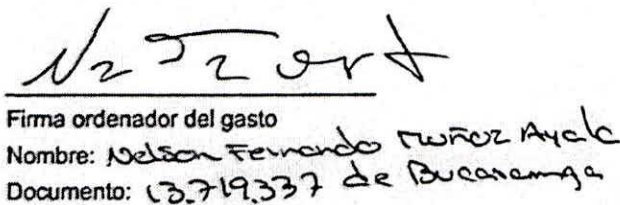 Firma ordenador del gasto
Nombre: Nelson Fernando Muñoz Ayala
Documento: 13.719.337 de Bucaramanga